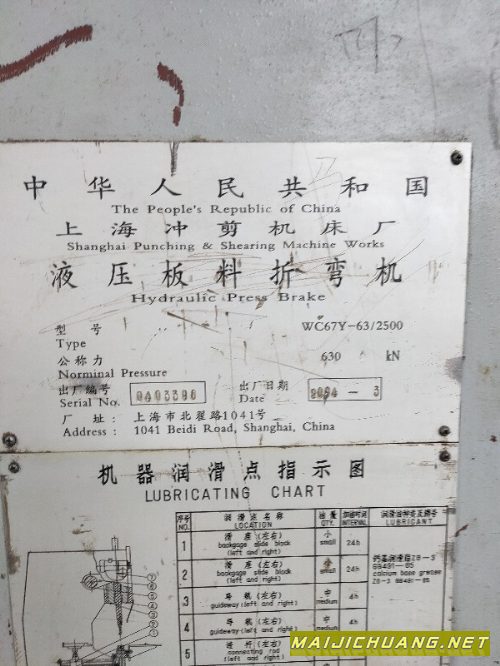 中华人民共和国
The People's Republic of China
上海冲剪机床厂
Shanghai Punching & Shearing Machine Works
液压板料折弯机
Hydraulic Press Brake
型号 WC67Y-63/2500
Type
公称力 630 kN
Norminal Pressure
出厂编号 出厂日期
Serial No. Date
厂址: 上海市北翟路1041号
Address: 1041 Beidi Road, Shanghai, China
机器润滑点指示图
LUBRICATING CHART
序号 润滑点名称 油量 加油时间 润滑油种类及牌号
NO. LOCATION QTY. INTERVAL LUBRICANT
1 滑座(左右) 小 24h
backgage slide block small
(left and right)
2 滑座(左右) 24h
backgage slide block small
(left and right)
钙基润滑脂ZG-3
GB491-65
calcium base grease
ZG-3 GB491-65
3 导轨(左右) 中 4h
guideway (left and right) medium
4 导轨(左右) 中 4h
guideway (left and right) medium
5 连杆(左右) 中
connecting rod
MAIJICHUANG.NET